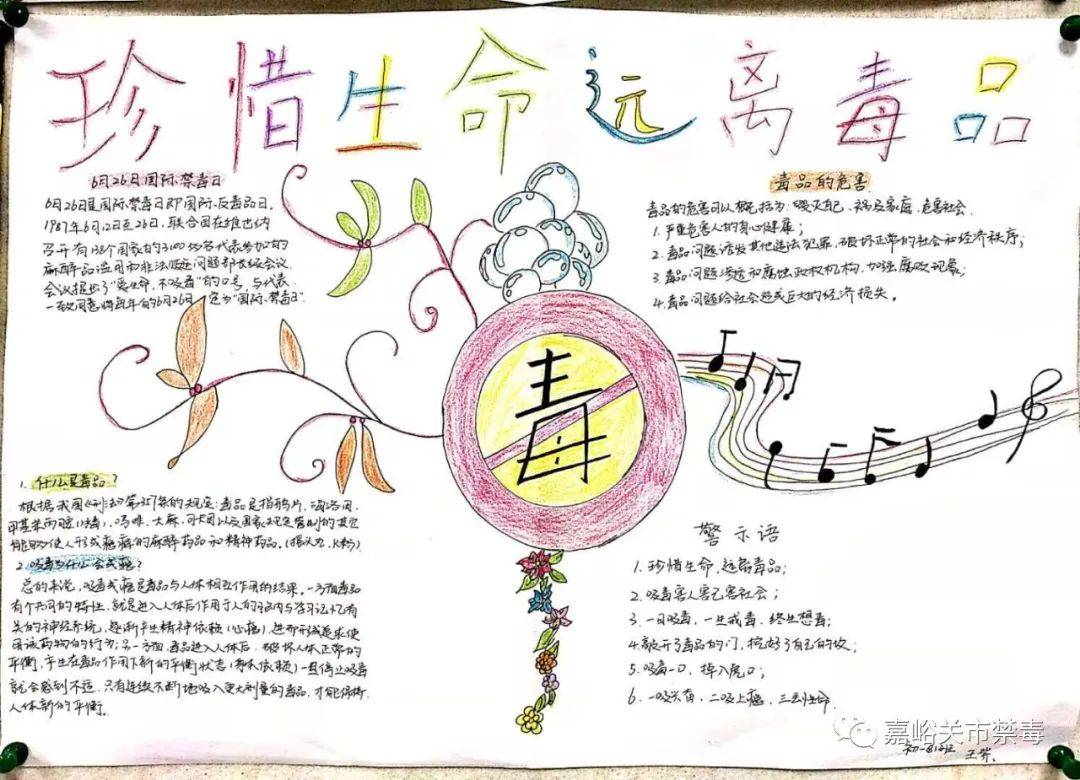 珍惜生命远离毒品
6月26日国际禁毒日
6月26日是国际禁毒日即国际反毒品日,
1987年6月12日至26日,联合国在维也纳
召开有138个国家的3100多名代表参加的
麻醉品滥用和非法贩运问题部长级会议.
会议提出了"爱生命,不吸毒"的口号,与代表
一致同意将每年的6月26日 定为"国际禁毒日".
毒品的危害
毒品的危害可以概括为:毁灭自己,祸及家庭,危害社会.
1.严重危害人的身心健康;
2.毒品问题诱发其他违法犯罪,破坏正常的社会和经济秩序;
3.毒品问题渗透和腐蚀政权机构,加强腐败现象;
4.毒品问题给社会造成巨大的经济损失。
毒
1.什么是毒品?
根据我国《刑法》第357条的规定:毒品是指鸦片,海洛因,
甲基苯丙胺(冰毒),吗啡,大麻,可卡因以及国家规定管制的其它
能够使人形成瘾癖的麻醉药品和精神药品。(摇头丸,K粉)
2.吸毒为什么会成瘾?
总的来说,吸毒成瘾是毒品与人体相互作用的结果。一方面毒品
有个共同的特性,就是进入人体后作用于人的脑内与学习记忆有
关的神经系统,逐渐产生精神依赖(心瘾),进而形成是求使
用该药物的行为;另一方面,毒品进入人体后,破坏人体正常的
平衡,产生在毒品作用下新的平衡状态(身体依赖)一旦停止吸毒
就会感到不适,只有连续不断地吸入更大剂量的毒品,才能保持
人体新的平衡。
警示语
1.珍惜生命,远离毒品;
2.吸毒害人害己害社会;
3.一日吸毒,一生戒毒,终生想毒;
4.敲开了毒品的门,挖好了自己的坟;
5.吸毒一口,掉入虎口;
6.一吸 二吸上瘾,三丢性命.
嘉峪关市禁毒
初一 班 王